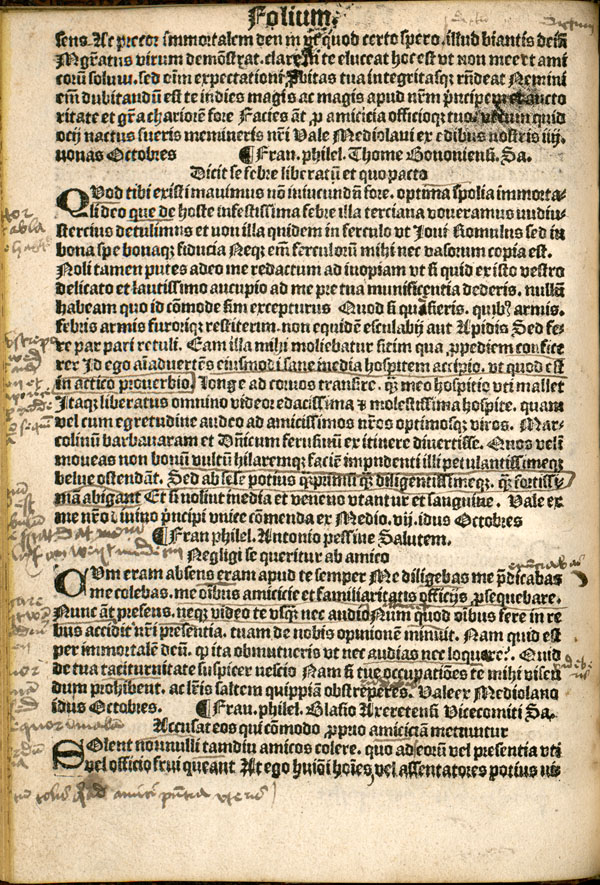 Folium.
sens. Ac precor immortalem deū m que quod certo spero. illud biantis dcīm
Mg̃ratus virum demōstrat. clare in te eluceat hoc est vt non meert ami
corū soluvi. sed oīm expectationi ꝓbitas tua integritasqꝫ rñdeat Nemini
eīm dubitandū est te indies magis ac magis apud nr̃m pͥncipem et aucto
ritate et gr̄a chariorem fore Facies āt ꝓ amicicia officioqꝫ tuo. vt cum quid
ocij nactus fueris memineris nr̄i Vale Mediolani ex edibus nostris iiij.
nonas Octobres ¶ Fran. philel. Thome Bononiensi. Sa.
Dicit se febre liberatū et quo pacto
QVod tibi existimauimus nōn iniucundū fore. optima spolia immorta-
li deo que de hoste infestissima febre illa terciana voueramus nudiu-
stercius detulimus et non illa quidem in ferculo vt Joui Romulus sed in
bona spe bonaqꝫ fiducia Neqꝫ eīm ferculorū mihi nec vasorum copia est.
Noli tamen putes adeo me redactum ad inopiam vt si quid ex isto vestro
delicato et lautissimo aucupio ad me pre tua munificentia dederis. nullū
habeam quo id cōmode sim excepturus Quod si quesieris. quibꝰ armis.
febris armis furoriqꝫ restiterim. non equidē esculabij aut Apidis Sed fe-
re par pari retuli. Eam illa mihi moliebatur sitim qua ꝓpediem confice
rer Id ego aīaduertēs eiusmodi sane media hospitem accipio. vt quod est
in attico prouerbio. longe ad coruos transire. qꝫ meo hospitio vti mallet
Itaqꝫ liberatus omnino videor edacissima ⁊ molestissima hospite. quam
vel cum egretudine audeo ad amicissimos nr̄os optimosqꝫ viros. Mar-
colinū barbauaram et Dñicum ferufinū ex itinere diuertisse. Quos velī
moueas non bonū vultū hilaremqꝫ faciē impudenti illi petulantissimeqꝫ
belue ostendāt. Sed ab sese potius qꝫprimū qꝫ diligentissimeqꝫ. qꝫ fortissi
mā abigant Et si noliut inedia et veneno vtantur et sanguine. Vale ex
me nr̄o diuino pͥncipi vnice cōmenda ex Medio. vij. idus Octobres
¶ Fran philel. Antonio pessine Salutem.
Negligi se queritur ab amico
CVm eram absens eram apud te semper Me diligebas me pͥdicabas
me colebas. me oībus amicicie et familiaritatis officijs ꝓsequebare.
Nunc āt presens. neqꝫ video te vsqꝫ nec audio Num quod oībus fere in re
bus accidit nr̄i presentia. tuam de nobis opinionē minuit. Nam quid est
per immortalē deū. ꝙ ita obmutueris vt nec audias nec loquare?. Quid
de tua taciturnitate suspicer nescio Nam si tue occupatiōes te mihi visen
dum prohibent. ac lr̄is saltem quippiam obstreperes. Valeex Mediolano
idus Octobres. ¶ Fran. philel. Blasio Axeretensi Vicecomiti Sa.
Accusat eos qui cōmodo ꝓpruo amiciciam metiuntur
SOlent nonnulli tamdiu amicos colere. quo ad eorū vel presentia vti
vel officio frui queant At ego huiōi hoīes vel assentatores potius vi-